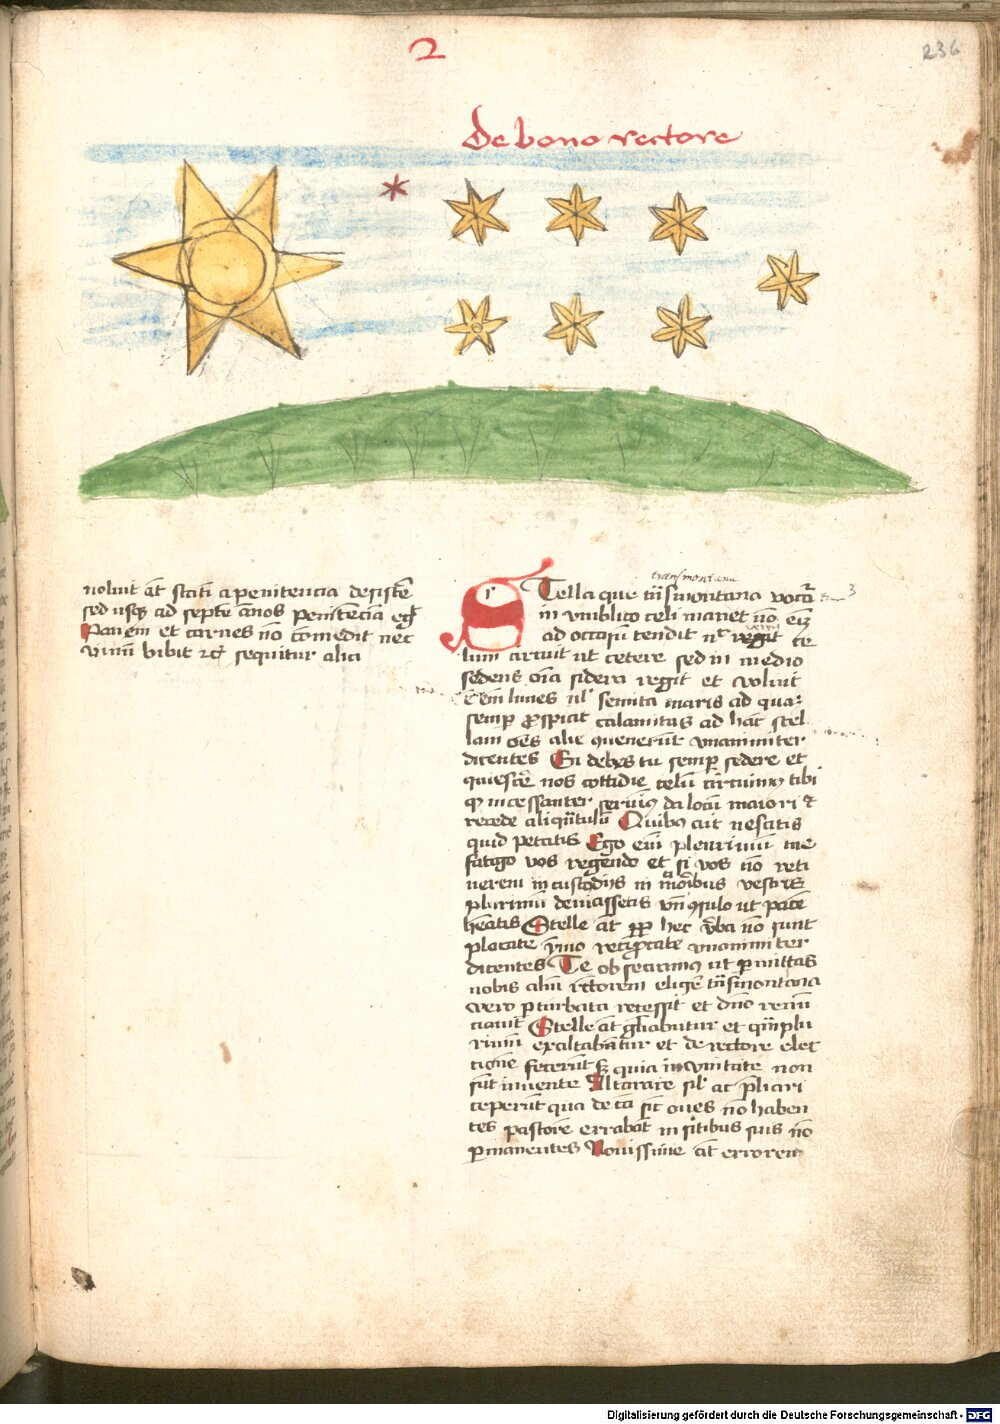 2
236
De bono rectore
noluit at̄ statī a penitencia desistē
sed usqꝫ ad septē ānos penitēciā egit
Panem et carnes nō comedit nec
vinū bibit sequitur alia
transmontana
Stella que trāsmontana vocat̄
in vmbilico celi manet nō eīꝫ
ad occasū tendit regit ce
lum circuit ut cetere sed in medio
sedens oīa sidera regit et voluit
semita maris ad quā
semꝑ ꝓspiciat calamitas ad hāc stel
lam oēs alie ꝯuenerūt vnanimiter
dicentes debes tu semꝑ sedere et
quiescē nos cottidie celū circuimꝰ tibi
incessanter seruimꝰ da locū maiori
recede aliqūtulū Quibꝰ ait nescitis
quid petatis Ego eim plurimū me
fatigo vos regendo et si vos nō reti
nerem in custodijs in moribus vestris
plurimū deuiassetis ꝯsulo ut pacē
heatis Stelle at̄ ꝓpt hec vba nō sunt
placate ymo vnanimiter
dicentes Te obsecramꝰ ut ꝑmittas
nobis aliū rectorem eligē trāsmontana
vero ꝑturbata recessit et dn̄o renū
ciauit Stelle at̄ gl̄abātur et
rimū exaltabātur et de rectore elec
tione fecerūt sꝫ quia in vnitate non
sūt inuente Altercare sil̄ ac p̄liari
ceperūt qua de cā sic oues nō haben
tes pastorē errabāt in sitibus suis nō
ꝑmanentes Nouissime at̄ errorem
Digitalisierung gefördert durch die Deutsche Forschungsgemeinschaft - DFG